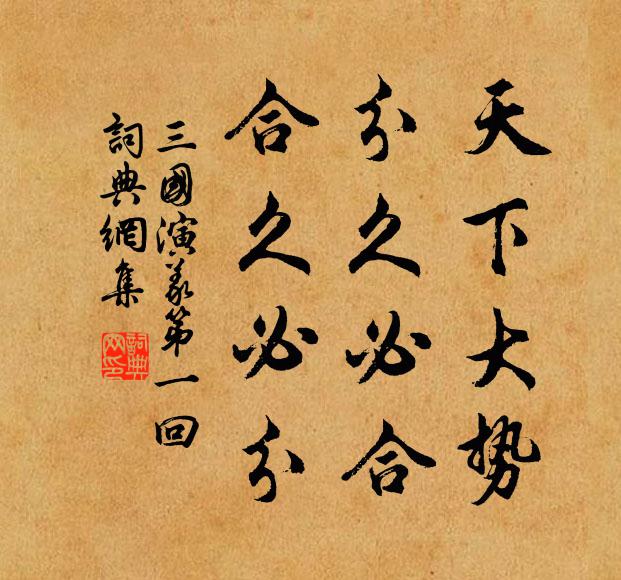 天下大势
分久必合
合久必分
三國演义第一回
詞典網集
詞典
网印